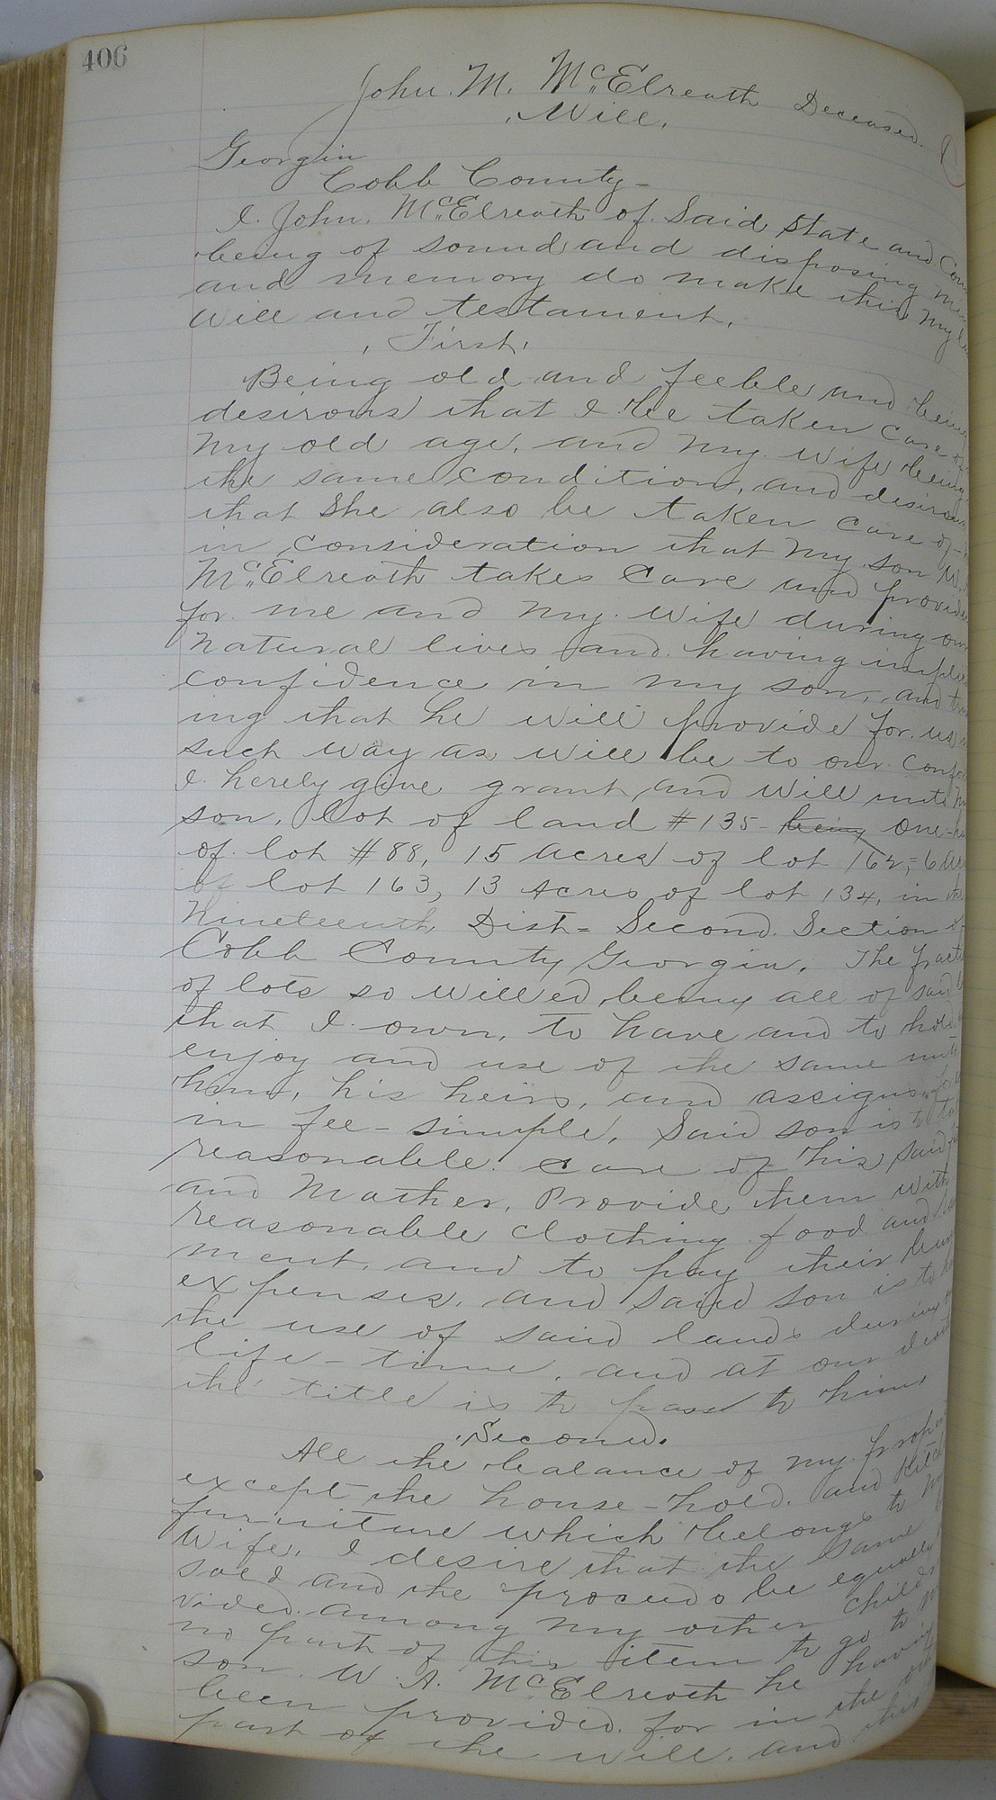 406
John. M. McElreath Deceased.
Will.
Georgia
Cobb County-
I. John. McElreath of Said State and
being of sound and disposing
and memory do make this my
Will and testament.
First.
Being old and feeble and being
desirous that I be taken care of
my old age, and my wife being
the same condition, and desirous
that She also be taken care of-
in consideration that my son W.
McElreath takes Care and provides
for me and my wife during our
natural lives and having
confidence in my son, and
ing that he will provide for us
such way as will be to our
I herely give grant and will unto
son, lot of land #135- being one-
of lot #88, 15 acres of lot 162,= 6
of lot 163, 13 Acres of lot 134, in
Nineteenth Dist- Second Section of
Cobb County Georgia. The
of lots so willed being all of said
that I own, to have and to hold
enjoy and use of the same unto
him, his heirs, and assigns
in fee-simple. Said son is to
reasonable care of his said
and Mother, Provide them with
reasonable clothing food and
ment, and to pay their
expenses, and said son is to
the use of said lands during
life-time, and at our
the title is to pass to him.
Second.
All the balance of my
except the house-hold. and
furniture which belongs to
Wife, I desire that the same
sold and the proceeds be equally
vided among my other
no part of this item to go to
son W. A. McElreath he having
been provided for in the
part of the will, and this